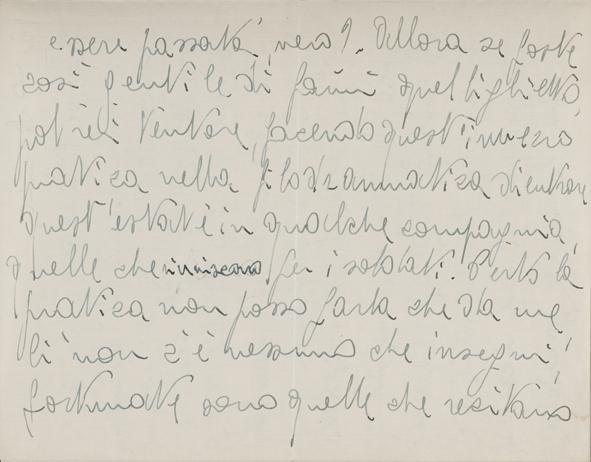 essere passata, vero? Allora se foste
così gentile di farmi quel biglietto,
potrei tentare, facendo quest'inverno
pratica nella filodrammatica di entrare
quest'estate in qualche compagnia,
quelle che riuniscono per i soldati. Certo la
pratica non posso farla che da me
lì non c'è nessuno che insegni,
fortunate sono quelle che recitano